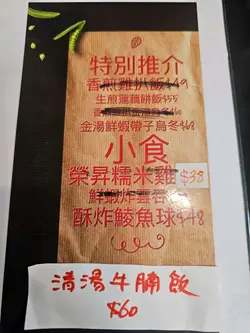 特別推介
香煎雞扒飯$49
生煎蓮藕餅飯$55
金湯鮮蝦帶子烏冬$68
小食
榮昇糯米雞$38
鮮蝦炸雲吞
酥炸鯪魚球$48
清湯牛腩飯
$60